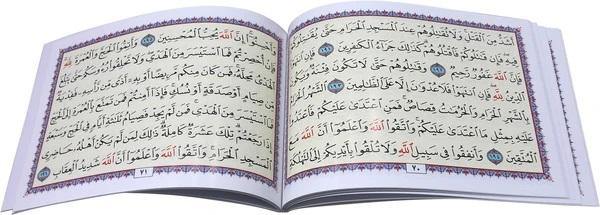 أَشَدُّ مِنَ ٱلْقَتْلِ وَلَا تُقَٰتِلُوهُمْ عِندَ ٱلْمَسْجِدِ ٱلْحَرَامِ حَتَّىٰ يُقَٰتِلُوكُمْ
فِيهِ فَإِن قَٰتَلُوكُمْ فَٱقْتُلُوهُمْ كَذَٰلِكَ جَزَآءُ ٱلْكَٰفِرِينَ ١٩١ فَإِنِ ٱنتَهَوْا۟
فَإِنَّ ٱللَّهَ غَفُورٌ رَّحِيمٌ ١٩٢ وَقَٰتِلُوهُمْ حَتَّىٰ لَا تَكُونَ فِتْنَةٌ وَيَكُونَ
ٱلدِّينُ لِلَّهِ فَإِنِ ٱنتَهَوْا۟ فَلَا عُدْوَٰنَ إِلَّا عَلَى ٱلظَّٰلِمِينَ ١٩٣ ٱلشَّهْرُ ٱلْحَرَامُ
بِٱلشَّهْرِ ٱلْحَرَامِ وَٱلْحُرُمَٰتُ قِصَاصٌ فَمَنِ ٱعْتَدَىٰ عَلَيْكُمْ فَٱعْتَدُوا۟
عَلَيْهِ بِمِثْلِ مَا ٱعْتَدَىٰ عَلَيْكُمْ وَٱتَّقُوا۟ ٱللَّهَ وَٱعْلَمُوٓا۟ أَنَّ ٱللَّهَ مَعَ
ٱلْمُتَّقِينَ ١٩٤ وَأَنفِقُوا۟ فِى سَبِيلِ ٱللَّهِ وَلَا تُلْقُوا۟ بِأَيْدِيكُمْ إِلَى ٱلتَّهْلُكَةِ
٧٠
وَأَحْسِنُوٓا۟ إِنَّ ٱللَّهَ يُحِبُّ ٱلْمُحْسِنِينَ ١٩٥ وَأَتِمُّوا۟ ٱلْحَجَّ وَٱلْعُمْرَةَ لِلَّهِ
فَإِنْ أُحْصِرْتُمْ فَمَا ٱسْتَيْسَرَ مِنَ ٱلْهَدْىِ وَلَا تَحْلِقُوا۟ رُءُوسَكُمْ حَتَّىٰ يَبْلُغَ
ٱلْهَدْىُ مَحِلَّهُۥ فَمَن كَانَ مِنكُم مَّرِيضًا أَوْ بِهِۦٓ أَذًى مِّن رَّأْسِهِۦ فَفِدْيَةٌ
مِّن صِيَامٍ أَوْ صَدَقَةٍ أَوْ نُسُكٍ فَإِذَآ أَمِنتُمْ فَمَن تَمَتَّعَ بِٱلْعُمْرَةِ إِلَى ٱلْحَجِّ
فَمَا ٱسْتَيْسَرَ مِنَ ٱلْهَدْىِ فَمَن لَّمْ يَجِدْ فَصِيَامُ ثَلَٰثَةِ أَيَّامٍ فِى ٱلْحَجِّ وَسَبْعَةٍ
إِذَا رَجَعْتُمْ تِلْكَ عَشَرَةٌ كَامِلَةٌ ذَٰلِكَ لِمَن لَّمْ يَكُنْ أَهْلُهُۥ حَاضِرِى
ٱلْمَسْجِدِ ٱلْحَرَامِ وَٱتَّقُوا۟ ٱللَّهَ وَٱعْلَمُوٓا۟ أَنَّ ٱللَّهَ شَدِيدُ ٱلْعِقَابِ ١٩٦
٧١